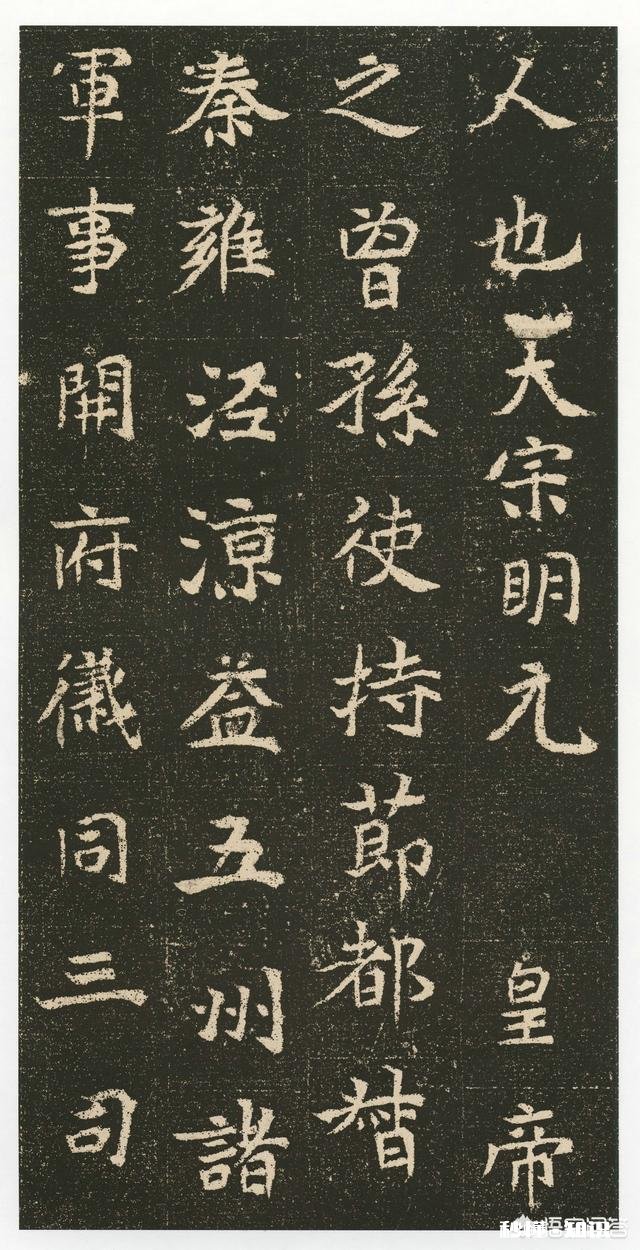 人也大宗明元 皇帝
之曾孫使持節都督
秦雍涇涼益五州諸
軍事開府儀同三司